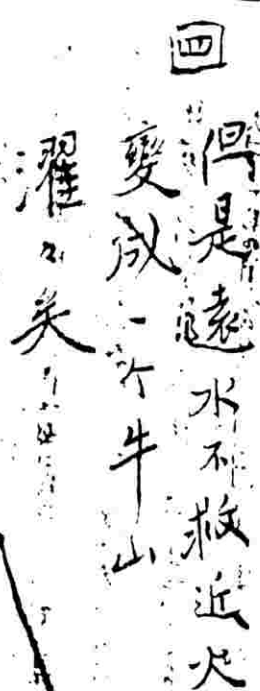 四
但是遠水不救近火
變成一个牛山
濯々矣